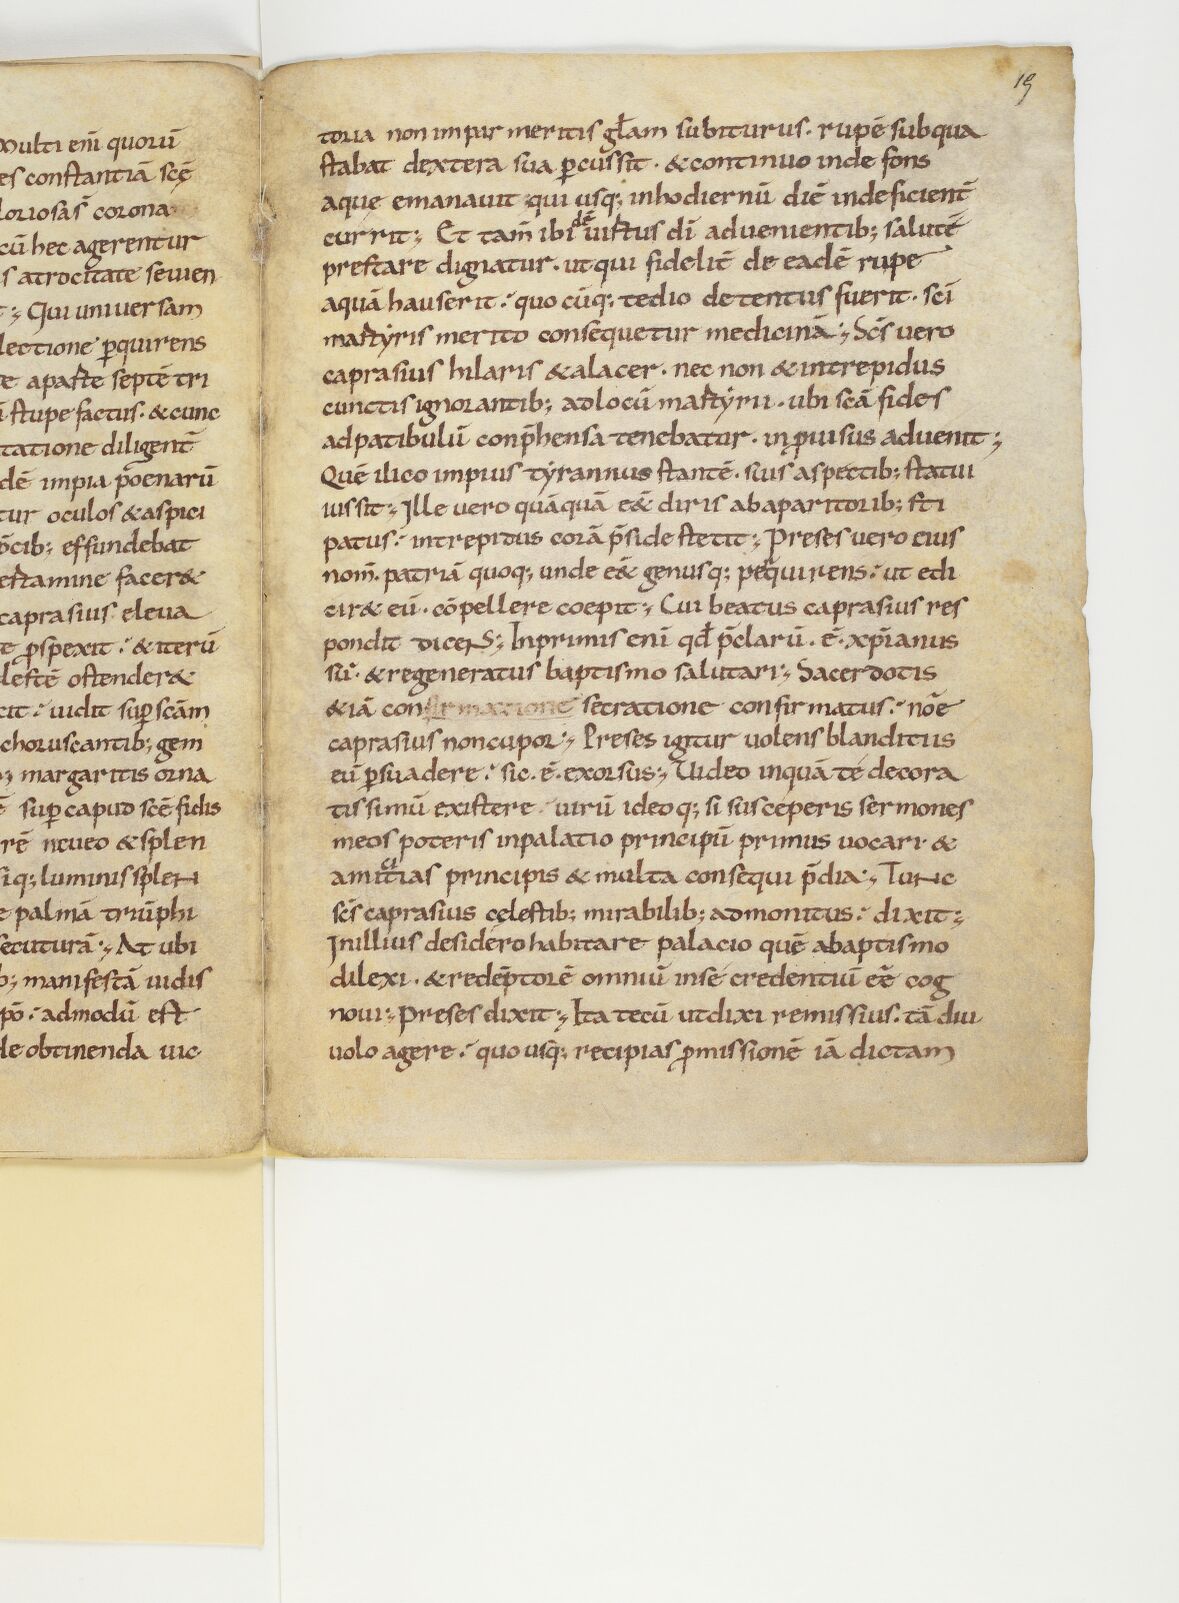 Multi eni᷒ quorū
es constantiā scę
loriosas corona
cū hec agerentur
s atrocitate seuien
t; Qui uniuersam
lectione ꝑquirens
te a parte septē tri
stupefactus. & cunc
tatione diligent̄
dē impia p̄oenarū
tur oculos & aspici
p̄cib; effundebat
estamine facer&
caprasius eleua
te ꝓspexit. & iterū
lestē ostender&
cit. uidit suꝑ scām
choruscantib; gem
margaritis orna
ē suꝑ capud scē fidis
rē niueo & splen
siq; luminis splen
e palmā triūphi
secuturā; At ubi
b; manifestā uidis
pō. admodū est
de obtinenda uic
19
toria non impar meritis gl̄am subiturus. rupē sub qua
stabat dextera sua ꝑcussit. & continuo inde fons
aquę emanauit qui usq; in hodiernū diē indeficient̄
currit; Et tam̄ ibidē uirtus dī aduenientib; salutē
prestare dignatur. ut qui fidelit̄ de eadē rupe
aquā hauserit. quocūq; tedio detentus fuerit. sc̄i
martyris merito consequetur medicinā; Sc̄s vero
caprasius hilaris & alacer. nec non & intrepidus
cunctis ignorantib; ad locū martyrii. ubi scā fides
ad patibulū conp̄hensa tenebatur. inꝓuisus aduenit;
Quē ilico impius tyrannus stantē. suis aspectib; statui
iussit; Ille uero quāquā eē& diris ab aparitorib; sti
patus. intrepidus corā p̄side stetit; Preses uero eius
nom̄. patriā quoq; unde eē& genusq; perquirens. ut edi
cir& eū. cōpellere coepit; Cui beatus caprasius res
pondit dicens; Inprimis eni᷒ qd̄ p̄clarū. ē. xp̄ianus
sū. & regeneratus baptismo salutari; Sacerdotis
& iā confirmatione secratione confirmatus. nōe
caprasius noncupor; Preses igitur uolens blanditus
eū ꝑsuadere. sic. ē. exorsus; Video inquā te decora
tissimū existere uirū ideoq; si susceperis sermones
meos poteris in palatio principū primus uocari &
amicitias principis & multa consequi p̄dia; Tunc
sc̄s caprasius cęlestib; mirabilib; admonitus. dixit;
In illius desidero habitare palacio quē a baptismo
dilexi. & redēptorē omniū in se credentiū eē cog
noui; Preses dixit; Ita tecū ut dixi remissius. tā diu
uolo agere. quousq; recipias ꝓmissionē iā dictam